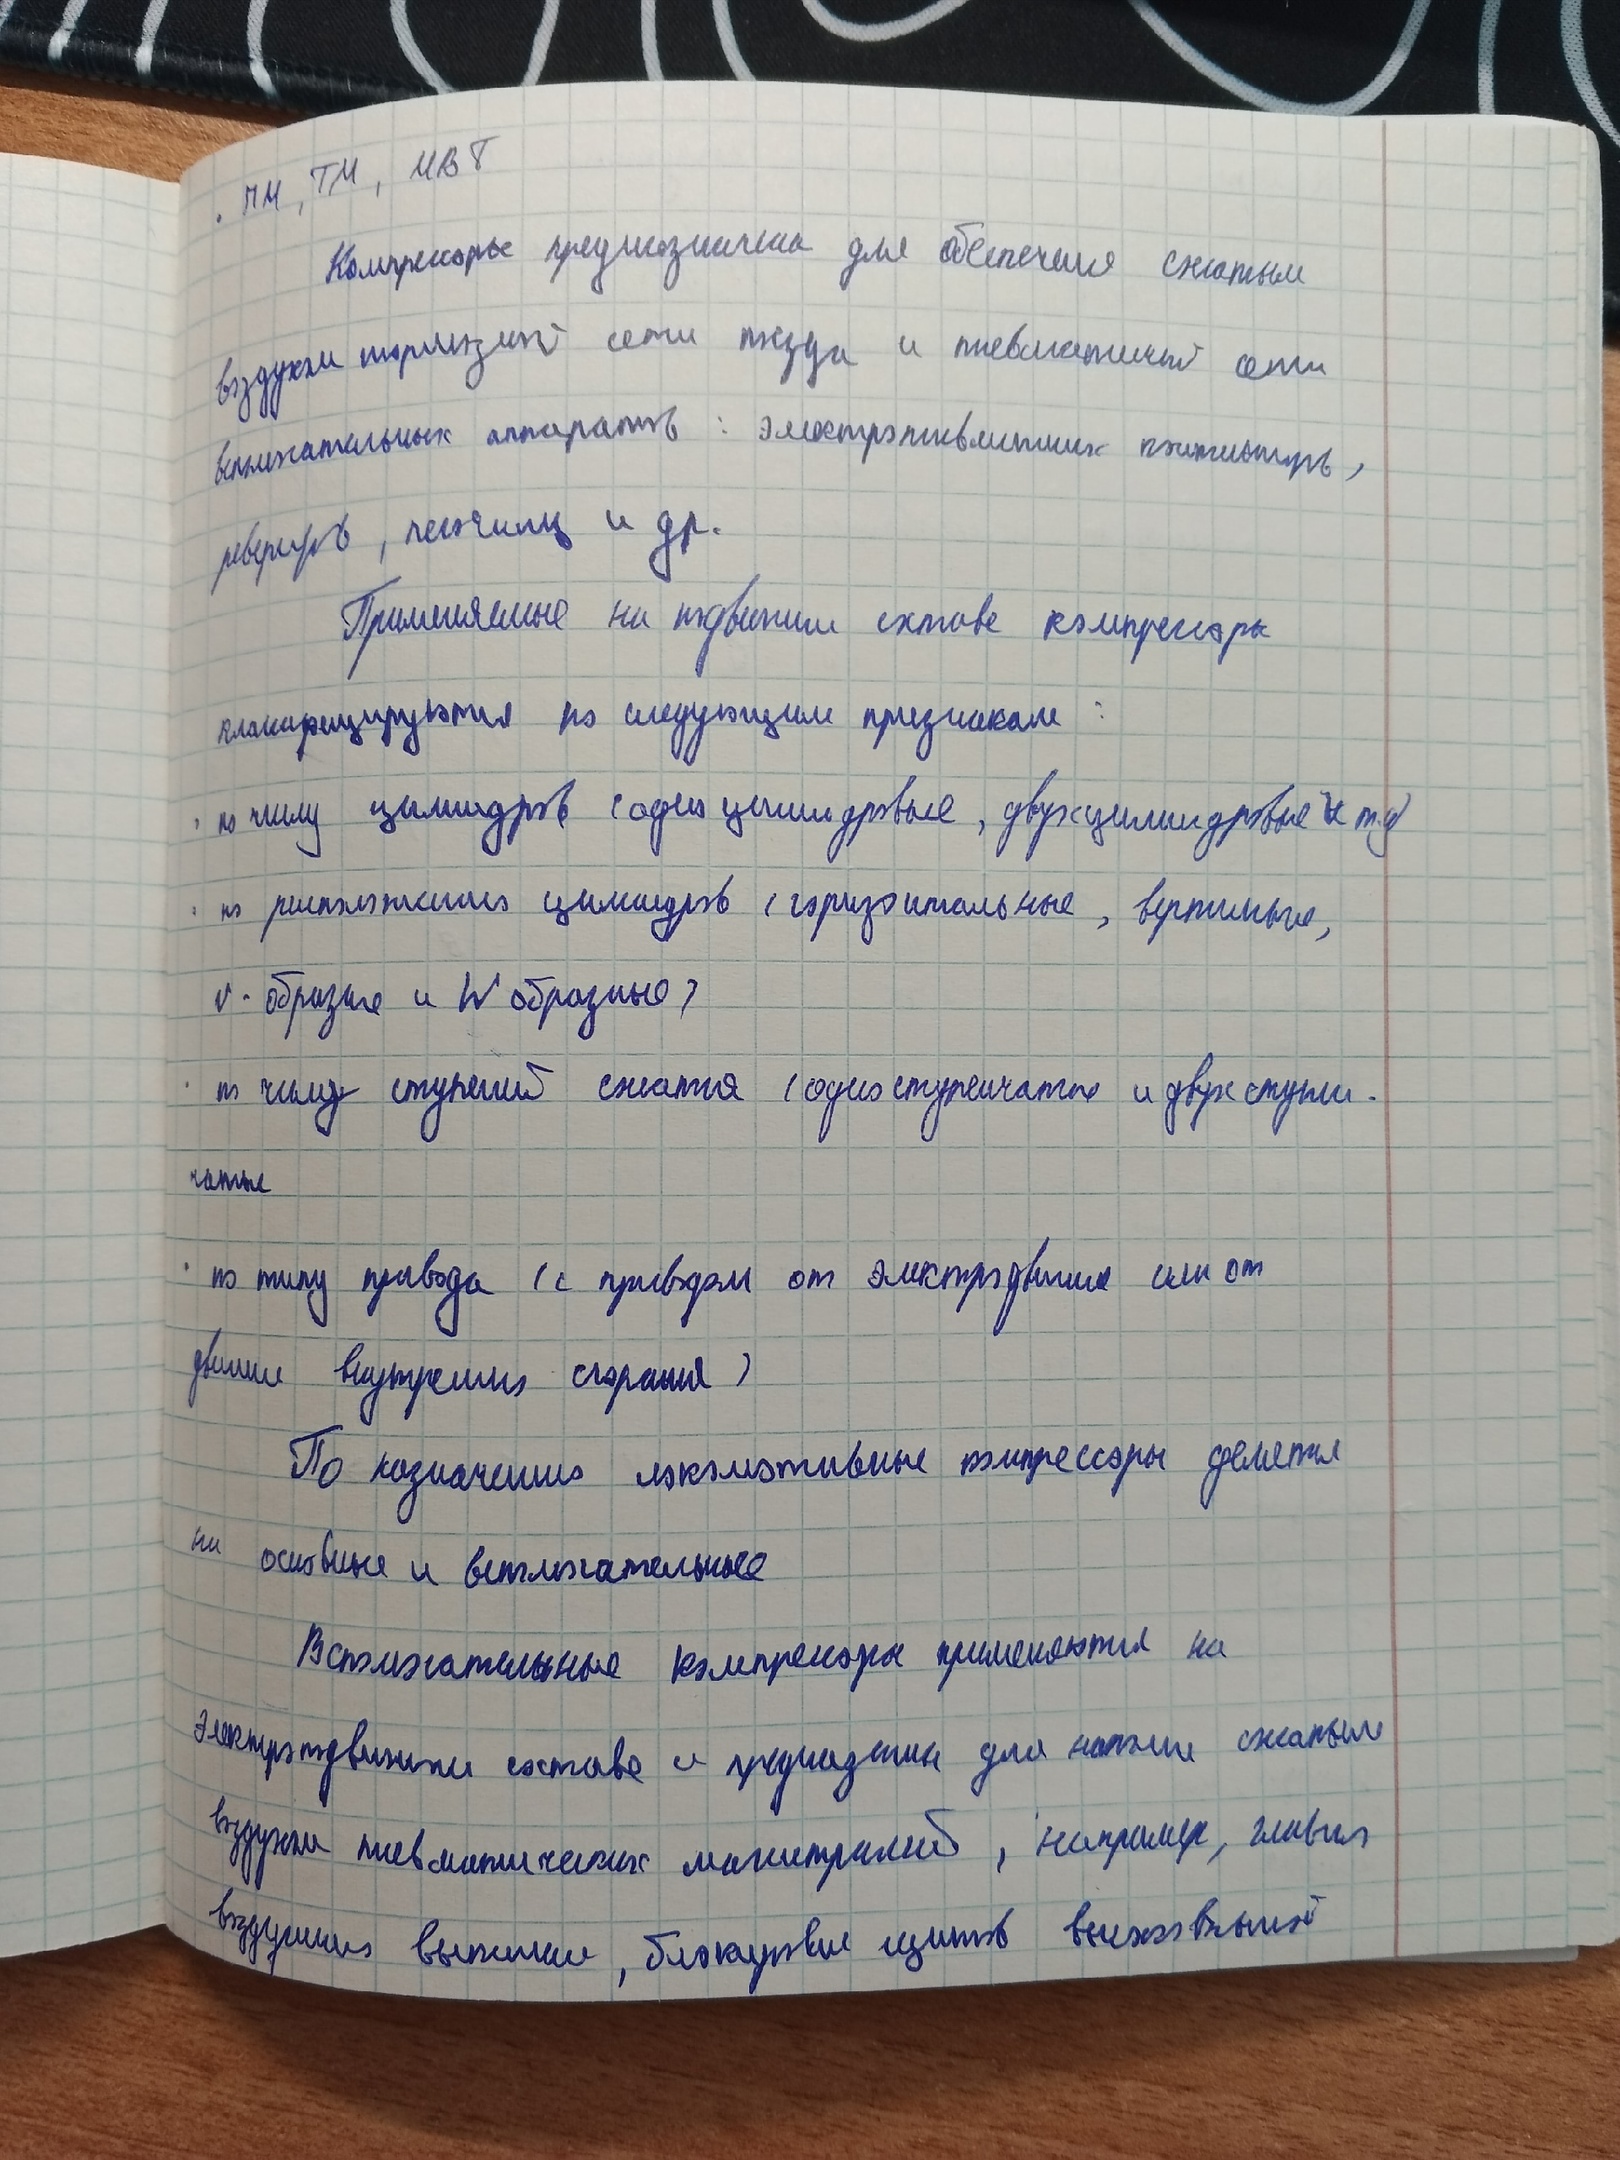 · ПМ, ТМ, МВТ
Компрессоры предназначена для обеспечения сжатым
воздухом тормозной сети поезда и пневматичной сети
вспомогательных аппаратов : электропневматических контакторов,
реверсоров, песочниц и др.
Применяемые на подвижном составе компрессоры
классифицируются по следующим признакам :
· по числу цилиндров (одноцилиндровые, двухцилиндровые и т.д)
· по расположению цилиндров (горизонтальные, вертикальные,
V - образные и W образные)
· по числу ступеней сжатия (одноступенчатые и двухступен-
чатые
· по типу привода (с приводом от электродвигателя или от
двигателя внутреннего сгорания)
По назначению локомотивные компрессоры делятся
на основные и вспомогательные
Вспомогательные компрессоры применяются на
электроподвижном составе и предназначены для наполнения сжатым
воздухом пневматических магистралей, например, главного
воздушного выключателя, блокирования щитов высоковольтной